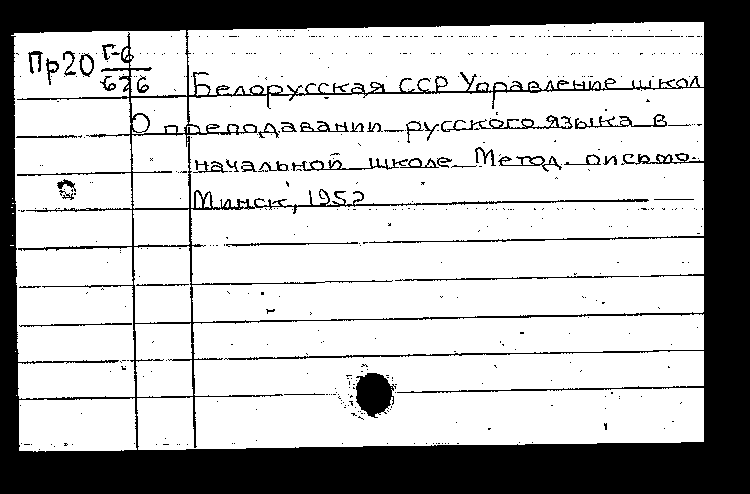 Пр20 Г-6/626
Белорусская ССР Управление школ
О преподавании русского языка в
начальной школе. Метод. письмо.
Минск, 1952